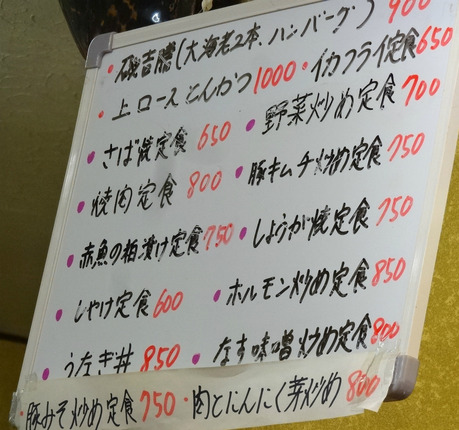 ・磯吉膳(大海老2本、ハンバーグ) 900
・上ロースとんかつ 1000 ・イカフライ定食 650
・さば焼定食 650 ・野菜炒め定食 700
・焼肉定食 800 ・豚キムチ炒め定食 750
・赤魚の粕漬け定食 750 ・しょうが焼定食 750
・しゃけ定食 600 ・ホルモン炒め定食 850
・うなぎ丼 850 ・なす味噌炒め定食 800
・豚みそ炒め定食 750 ・肉とにんにく芽炒め 800